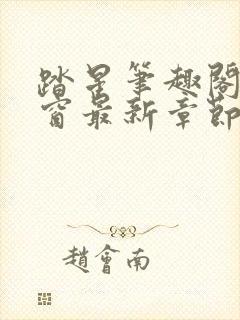 踏星筆趣閣
窗最新章節
趙會南